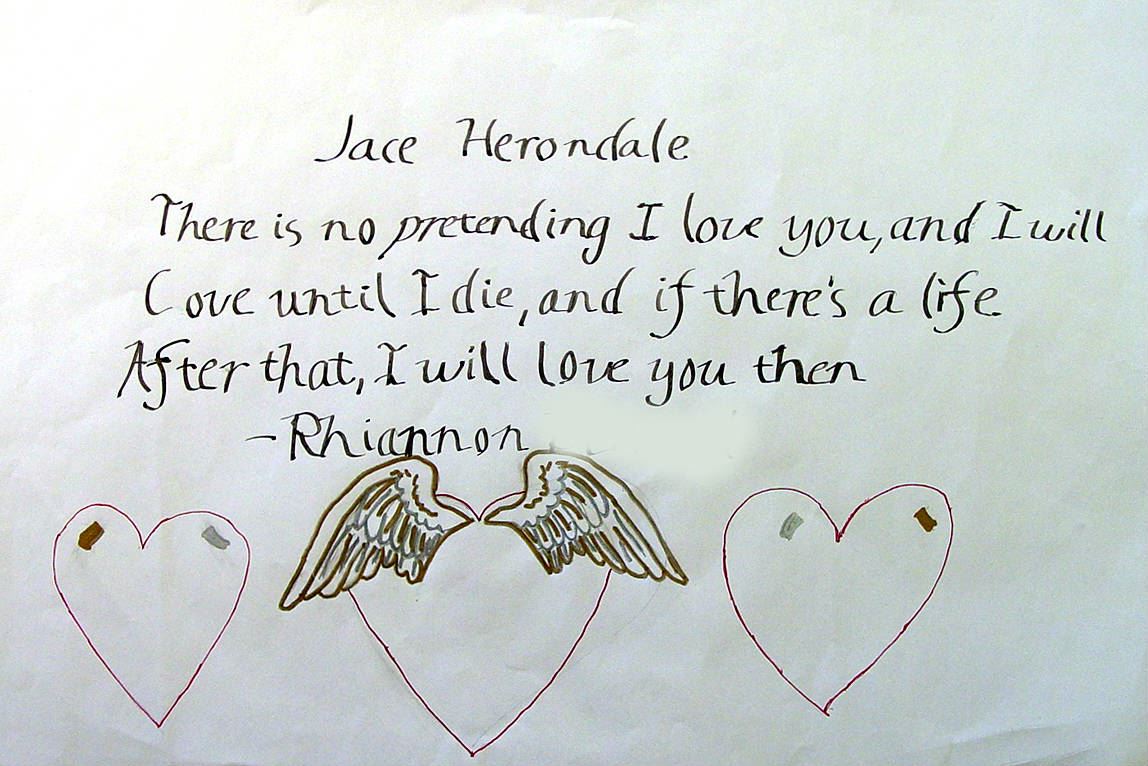 Jace Herondale
There is no pretending I love you, and I will
Love until I die, and if there's a life
After that, I will love you then
-Rhiannon